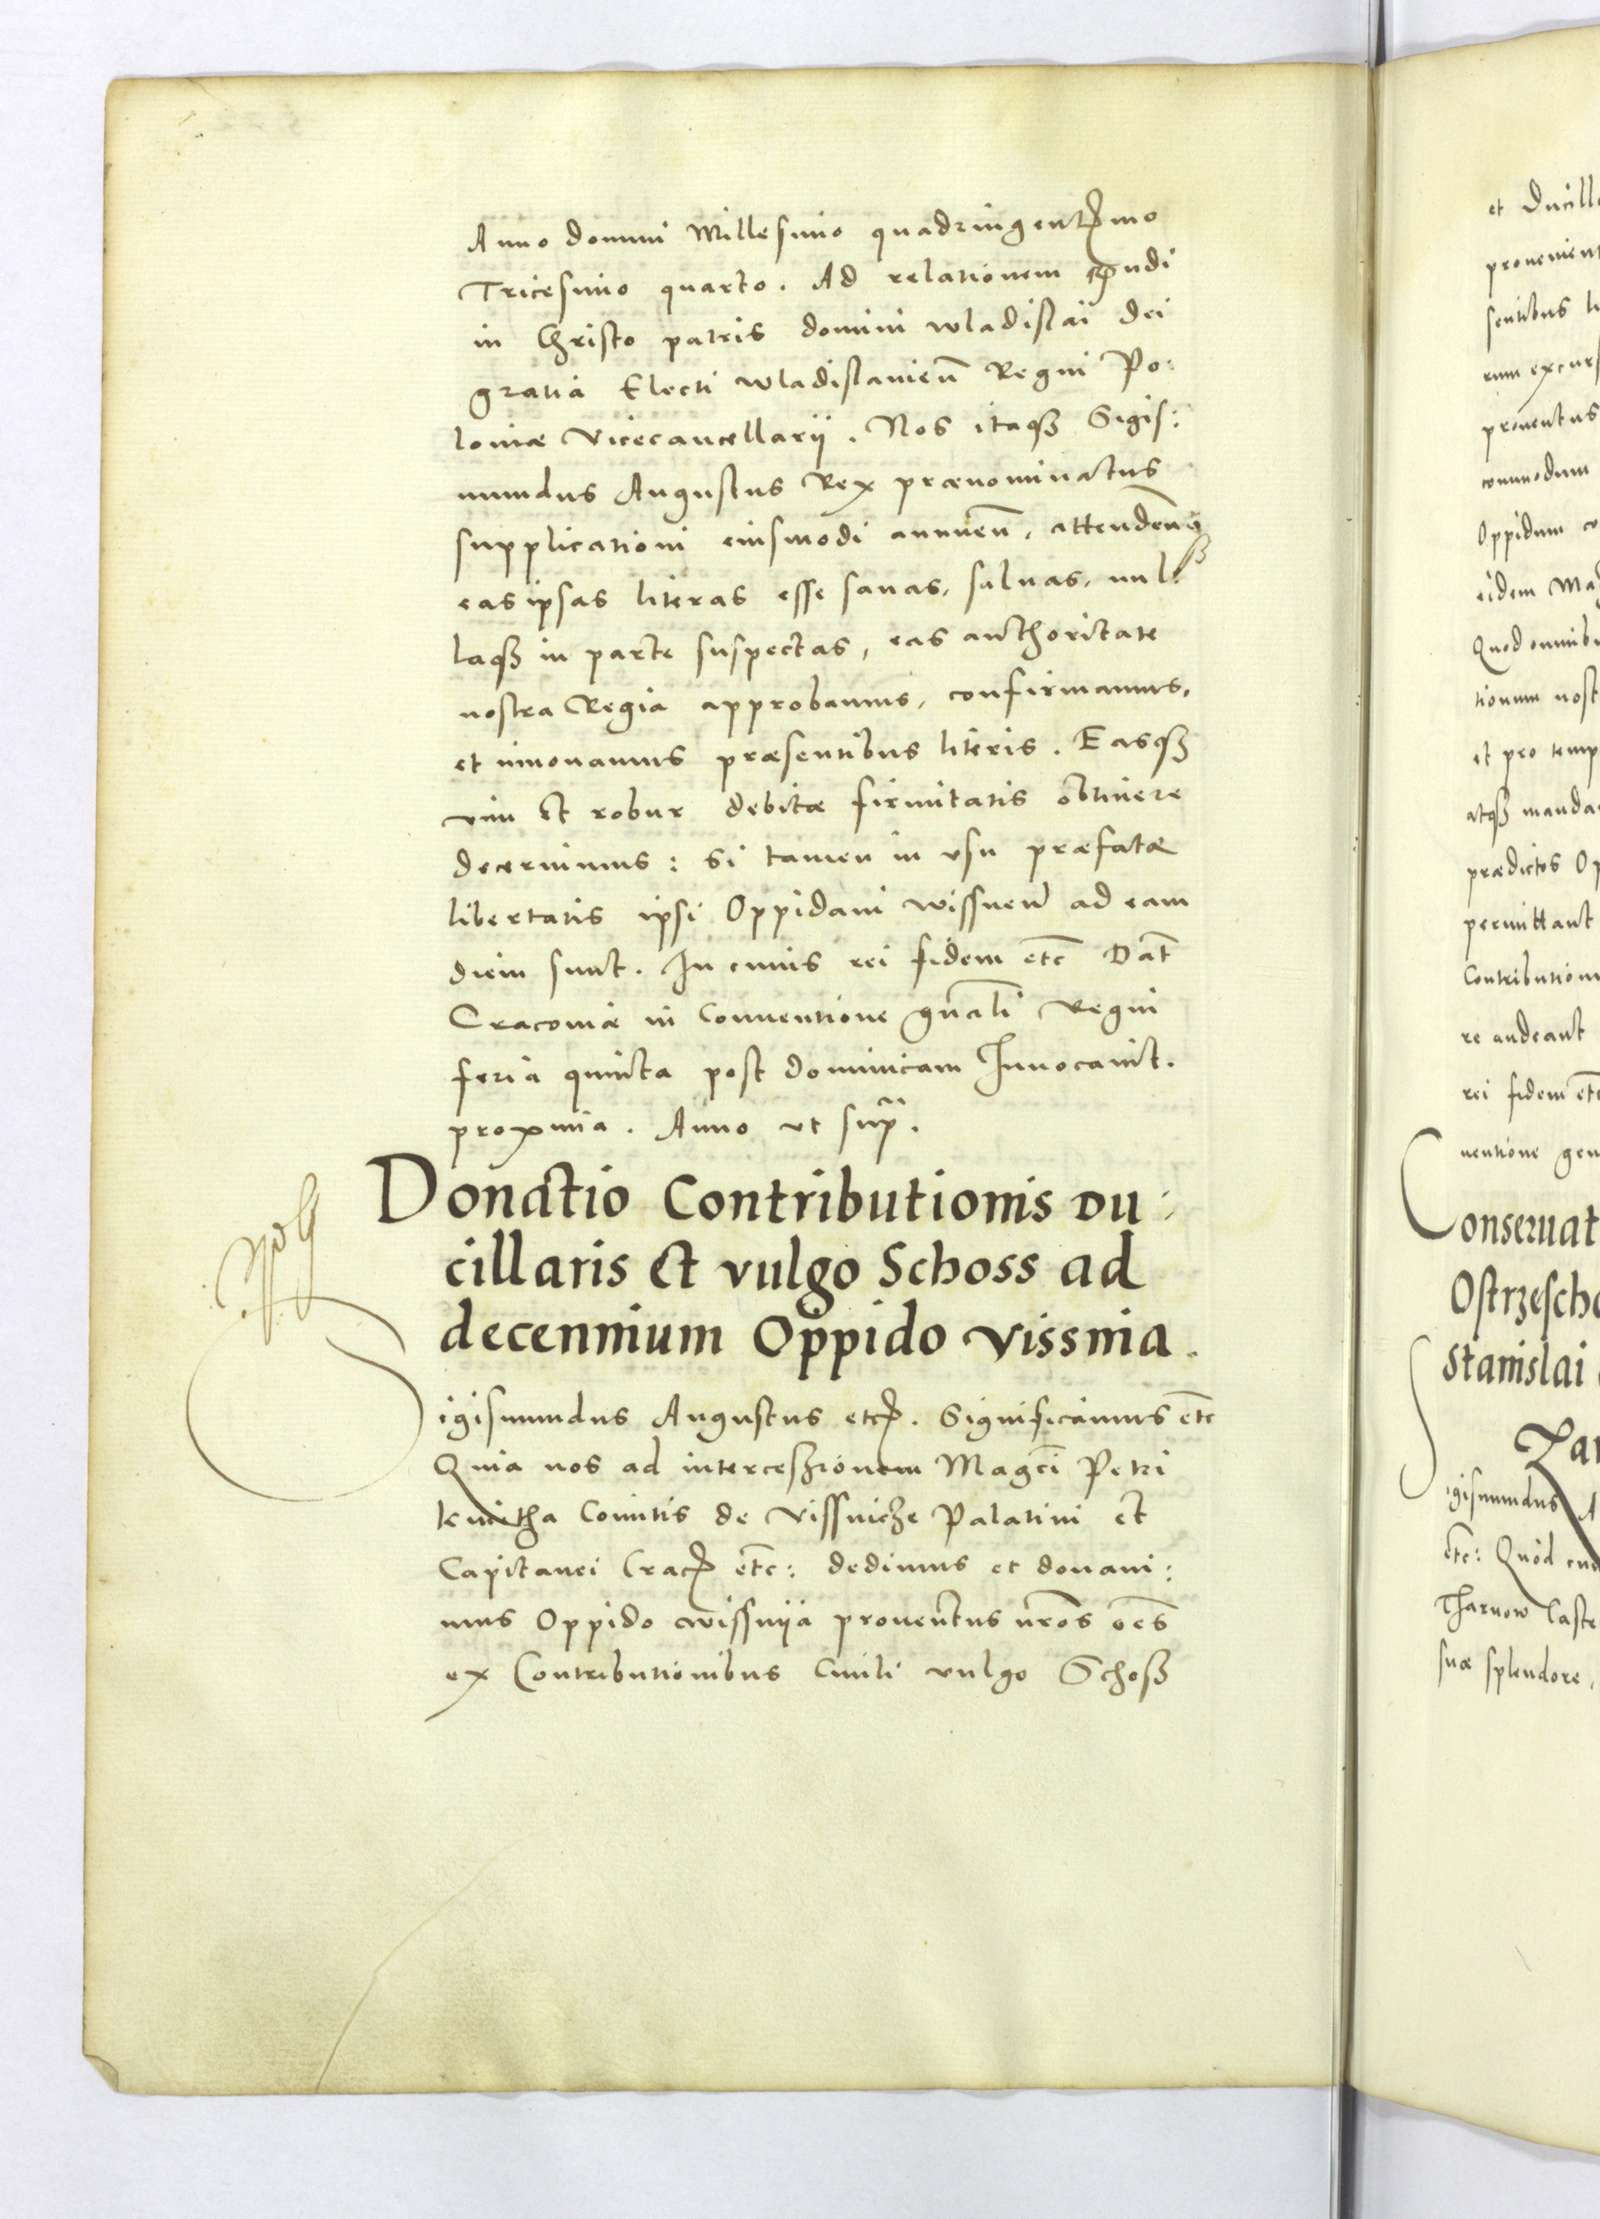 Anno domini Millesimo quadringentesimo
Tricesimo quarto. Ad relationem rendi
in Christo patris domini wladislai dei
gratia Electi wladislauieñ Regni Po:
loniæ vicecancellarij. Nos itaqȝ Sigis:
mundus Augustus Rex prænominatus
supplicationi eiusmodi annueñ, attendeñ
eas ipsas literas esse sanas, saluas, nul:
laqȝ in parte suspectas, eas authoritate
nostra Regia approbamus, confirmamus,
et innouamus præsentibus literis. Easqȝ
vim et robur debitæ firmitatis obtinere
decernimus: Si tamen in vsu præfatæ
libertatis ipsi Oppidani wissneñ ad eam
diem sunt. In cuius rei fidem etc Dat
Cracouiæ in Conuentione gñali Regni
feria quinta post dominicam Inuocauit.
proxima. Anno vt sup̃.
Donatio Contributionis du:
cillaris et vulgo Schoss ad
decennium Oppido vissnia.
Sigismundus Augustus etc. Significamus etc
Quia nos ad intercessionem Magci Petri
kmitha Comitis de vissnicze Palatini et
Capitanei Crac etc: dedimus et donaui:
mus Oppido wissnija prouentus nros oes
ex Contributionibus Ciuili vulgo Schosß
et Ducill
prouenient
sentibus li
rum excurs
prouentus
commodum
Oppidum co
eidem Mag
Quod omnibu
tionum nost
et pro temp
atqȝ manda
prædictos Op
permittant
Contribution
re audeant
rei fidem etc
uentione gen
Conseruat
Ostrzescho
Stanislai
Tar
Sigismundus A
etc: Quod
Tharnow Caste
suæ splendore,